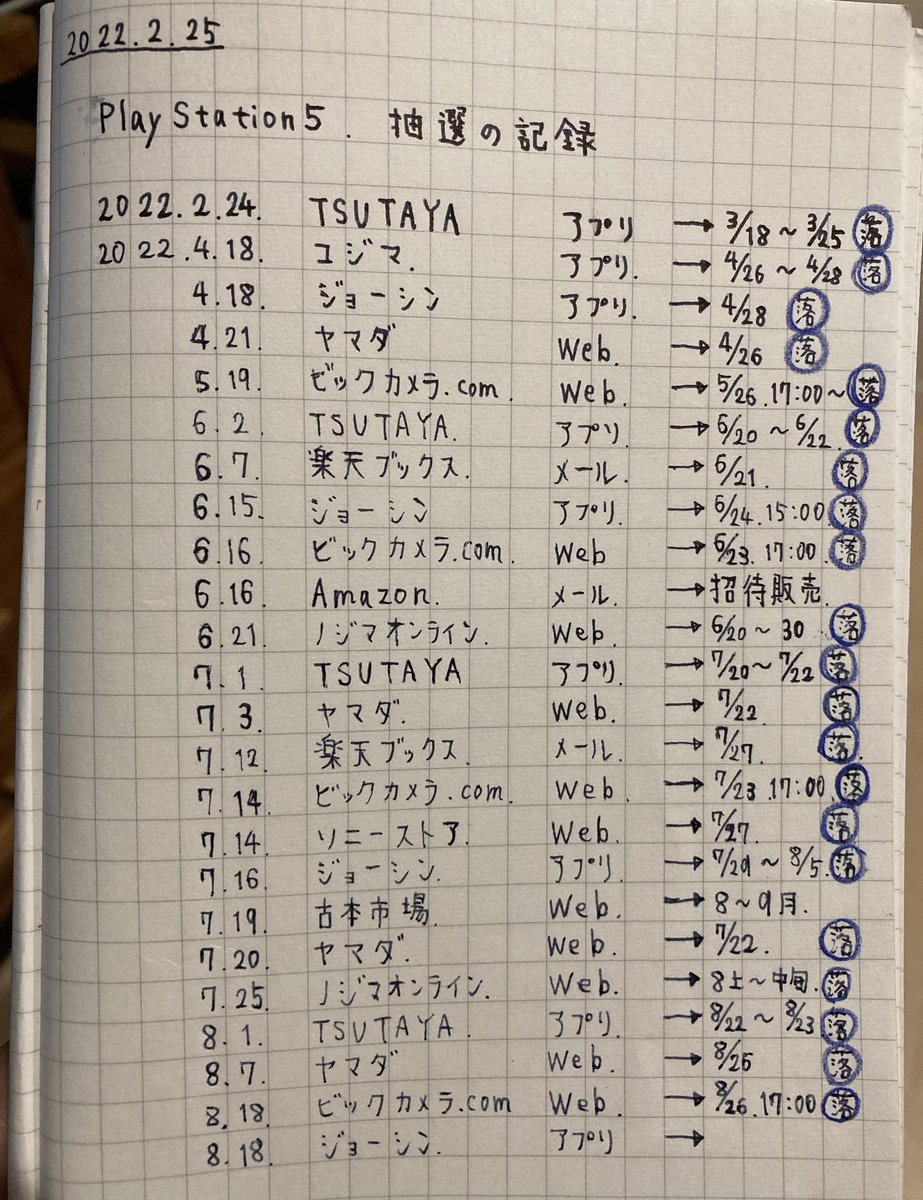 2022.2.25
PlayStation5. 抽選の記録
2022.2.24. TSUTAYA アプリ → 3/18～3/25 落
2022.4.18. コジマ. アプリ. → 4/26～4/28 落
4.18. ジョーシン アプリ. → 4/28 落
4.21. ヤマダ Web. → 4/26 落
5.19. ビックカメラ.com Web. → 5/26.17:00～ 落
6.2. TSUTAYA. アプリ. → 6/20～6/22. 落
6.7. 楽天ブックス. メール. → 6/21. 落
6.15. ジョーシン アプリ. → 6/24.15:00 落
6.16. ビックカメラ.com. Web → 6/23.17:00 落
6.16. Amazon. メール. → 招待販売.
6.21. ノジマオンライン. Web. → 6/20～30 落
7.1. TSUTAYA アプリ. → 7/20～7/22 落
7.3. ヤマダ. Web. → 7/22. 落
7.12. 楽天ブックス メール. → 7/27. 落
7.14. ビックカメラ.com. Web. → 7/23.17:00. 落
7.14. ソニーストア Web. → 7/27. 落
7.16. ジョーシン. アプリ. → 7/29～8/5. 落
7.19. 古本市場. Web. → 8～9月.
7.20. ヤマダ. Web. → 7/22. 落
7.25. ノジマオンライン. Web. → 8上～中旬. 落
8.1. TSUTAYA. アプリ. → 8/22～8/23. 落
8.7. ヤマダ Web. → 8/25 落
8.18. ビックカメラ.com Web. → 8/26.17:00 落
8.18. ジョーシン. アプリ →